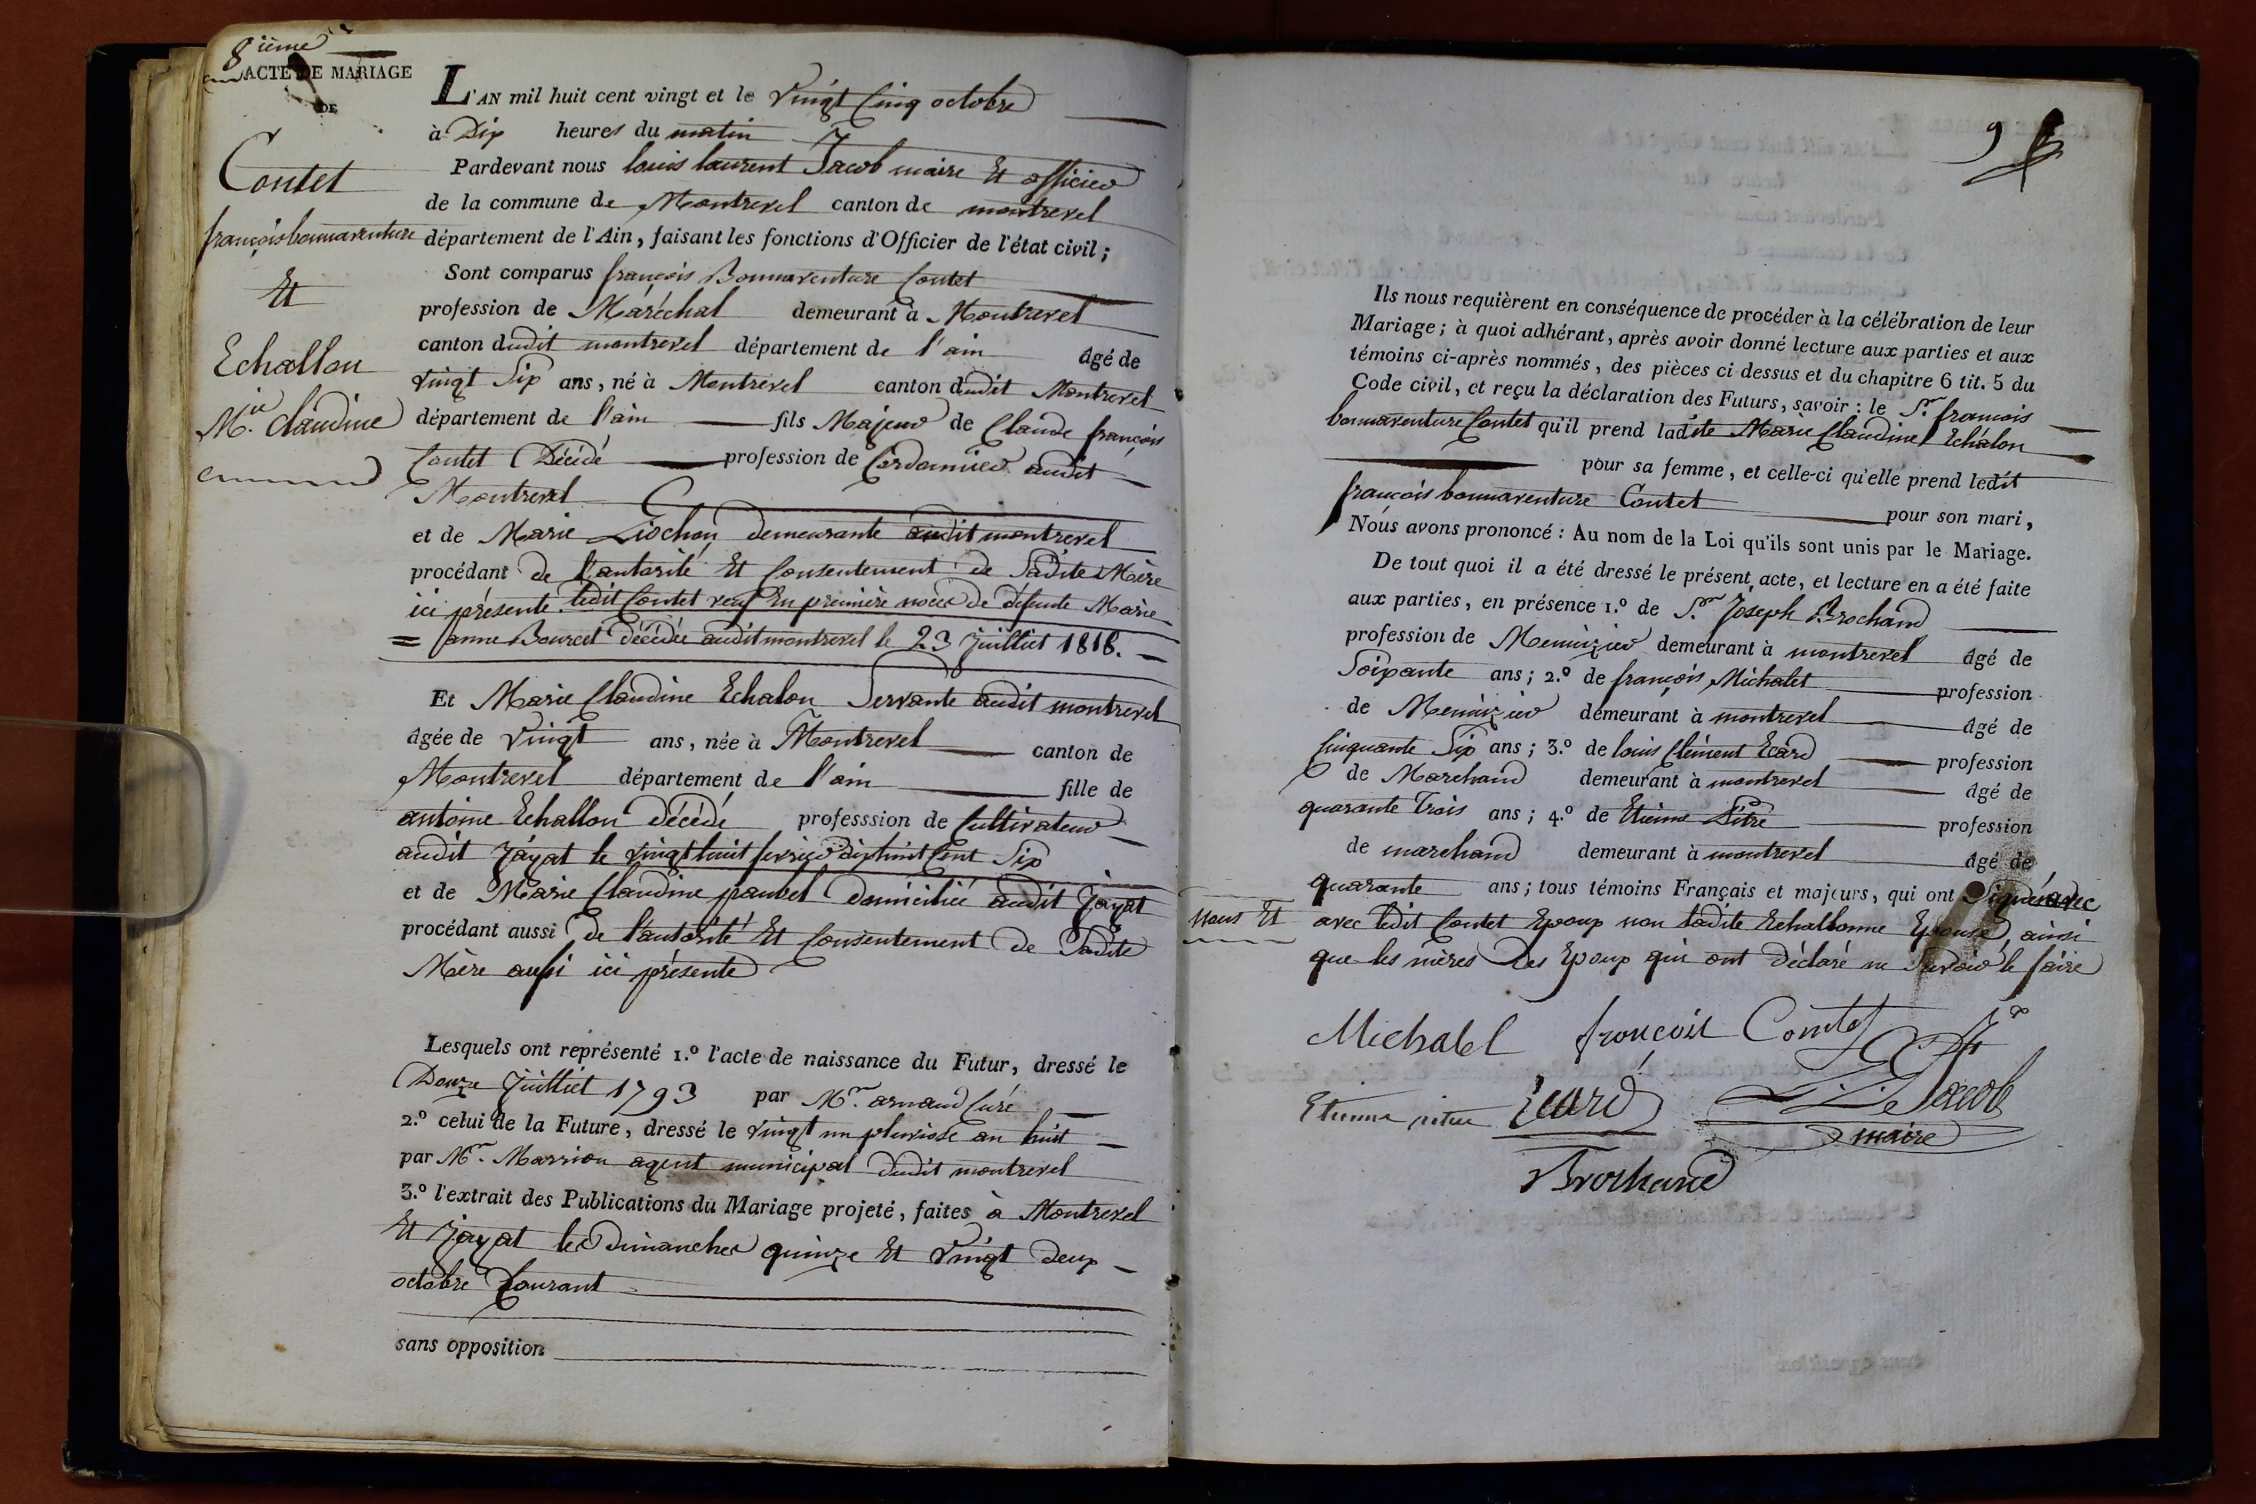 8 ième
ACTE DE MARIAGE
DE
Contet
françois bonnaventure
Et
Echallon
M.ie Claudine
L'AN mil huit cent vingt et le Vingt Cinq octobre
à Dix heures du matin
Pardevant nous louis laurent Jacob maire Et officier
de la commune de Montrevel canton de montrevel
département de l'Ain, faisant les fonctions d'Officier de l'état civil;
Sont comparus françois Bonnaventure Contet
profession de Maréchal demeurant à Montrevel
canton dudit montrevel département de l'ain âgé de
vingt Six ans, né à Montrevel canton dudit Montrevel
département de l'ain fils Majeur de Claude françois
Contet Décédé profession de Cordonnier audit
Montrevel
et de Marie Liochon demeurante audit montrevel
procédant de l'autorité Et Consentement de Sadite Mère
ici présente. ledit Contet veuf En première noces de défunte Marie
= Janne Bourcet décédée audit montrevel le 23 Juilliet 1818.
Et Marie Claudine Echalon Servante audit montrevel
âgée de Vingt ans, née à Montrevel canton de
Montrevel département de l'ain fille de
antoine Echallon décédé professsion de Cultivateur
audit Jayat le vingt huit fevrier dixhuit Cent Six
et de Marie Claudine paubel domiciliée audit Jayat
procédant aussi de l'autorité Et Consentement de Sadite
Mère aussi ici présente
Lesquels ont représenté 1.º l'acte de naissance du Futur, dressé le
Douze Juilliet 1793 par Mr. arnaud Curé
2.º celui de la Future, dressé le vingt un pluviose an huit
par Mr. Marion agent municipal dudit montrevel
3.º l'extrait des Publications du Mariage projeté, faites à Montrevel
Et Jayat les Dimanches quinze Et Vingt deux
octobre Courant
sans opposition
9
Ils nous requièrent en conséquence de procéder à la célébration de leur
Mariage; à quoi adhérant, après avoir donné lecture aux parties et aux
témoins ci-après nommés, des pièces ci dessus et du chapitre 6 tit. 5 du
Code civil, et reçu la déclaration des Futurs, savoir: le Sr. francois
bonnaventure Contet qu'il prend ladite Marie Claudine Echalon
pour sa femme, et celle-ci qu'elle prend ledit
françois bonnaventure Contet pour son mari,
Nous avons prononcé: Au nom de la Loi qu'ils sont unis par le Mariage.
De tout quoi il a été dressé le présent acte, et lecture en a été faite
aux parties, en présence 1.º de Sr. Joseph Brochand
profession de Menuizier demeurant à montrevel âgé de
Soixante ans; 2.º de françois Michalet profession
de Menuizier demeurant à montrevel âgé de
Cinquante Six ans; 3.º de louis Clément Ecard profession
de Marchand demeurant à montrevel âgé de
quarante Trois ans; 4.º de Etienne Pitre profession
de marchand demeurant à montrevel âgé de
quarante ans; tous témoins Français et majeurs, qui ont Signé avec
nous Et avec ledit Contet Epoux non ladite Echallonne Epouse, ainsi
que les mères des Epoux qui ont déclaré ne Savoir le faire
Michalet françois Contet
Etienne pitre Ecard Jacob
maire
Brochand